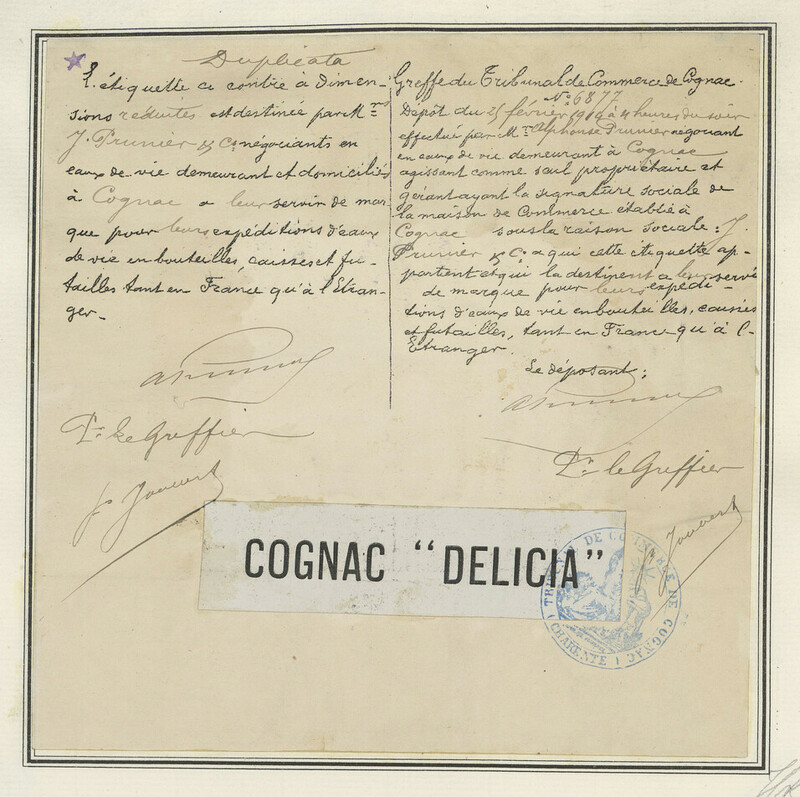 Duplicata
L'étiquette ci contre à dimen-
sions réduites est destinée par Mrs
J. Prunier & Co négociants en
eaux de vie demeurant et domiciliés
à Cognac a leur servir de mar
que pour leurs expéditions d'eaux
de vie en bouteilles, caisses et fu-
tailles tant en France qu'à l'Etran-
ger.
Pr le Greffier
Greffe du Tribunal de Commerce de Cognac.
No 6877
Dépôt du 25 février 1916 à 4 heures du soir
effectué par Mr Alphonse Prunier négociant
en eaux de vie demeurant à Cognac
agissant comme seul propriétaire et
gérant ayant la signature sociale de
la maison de Commerce établie à
Cognac sous la raison sociale: J.
Prunier & Co a qui cette étiquette ap-
partient et qui la destinent a leur servir
de marque pour leurs expédi-
tions d'eaux de vie en bouteilles, caisses
et futailles, tant en France qu'à l'
Etranger.
Le déposant:
Pr le Greffier
COGNAC "DELICIA"
TRIBUNAL DE COMMERCE DE COGNAC
(CHARENTE)